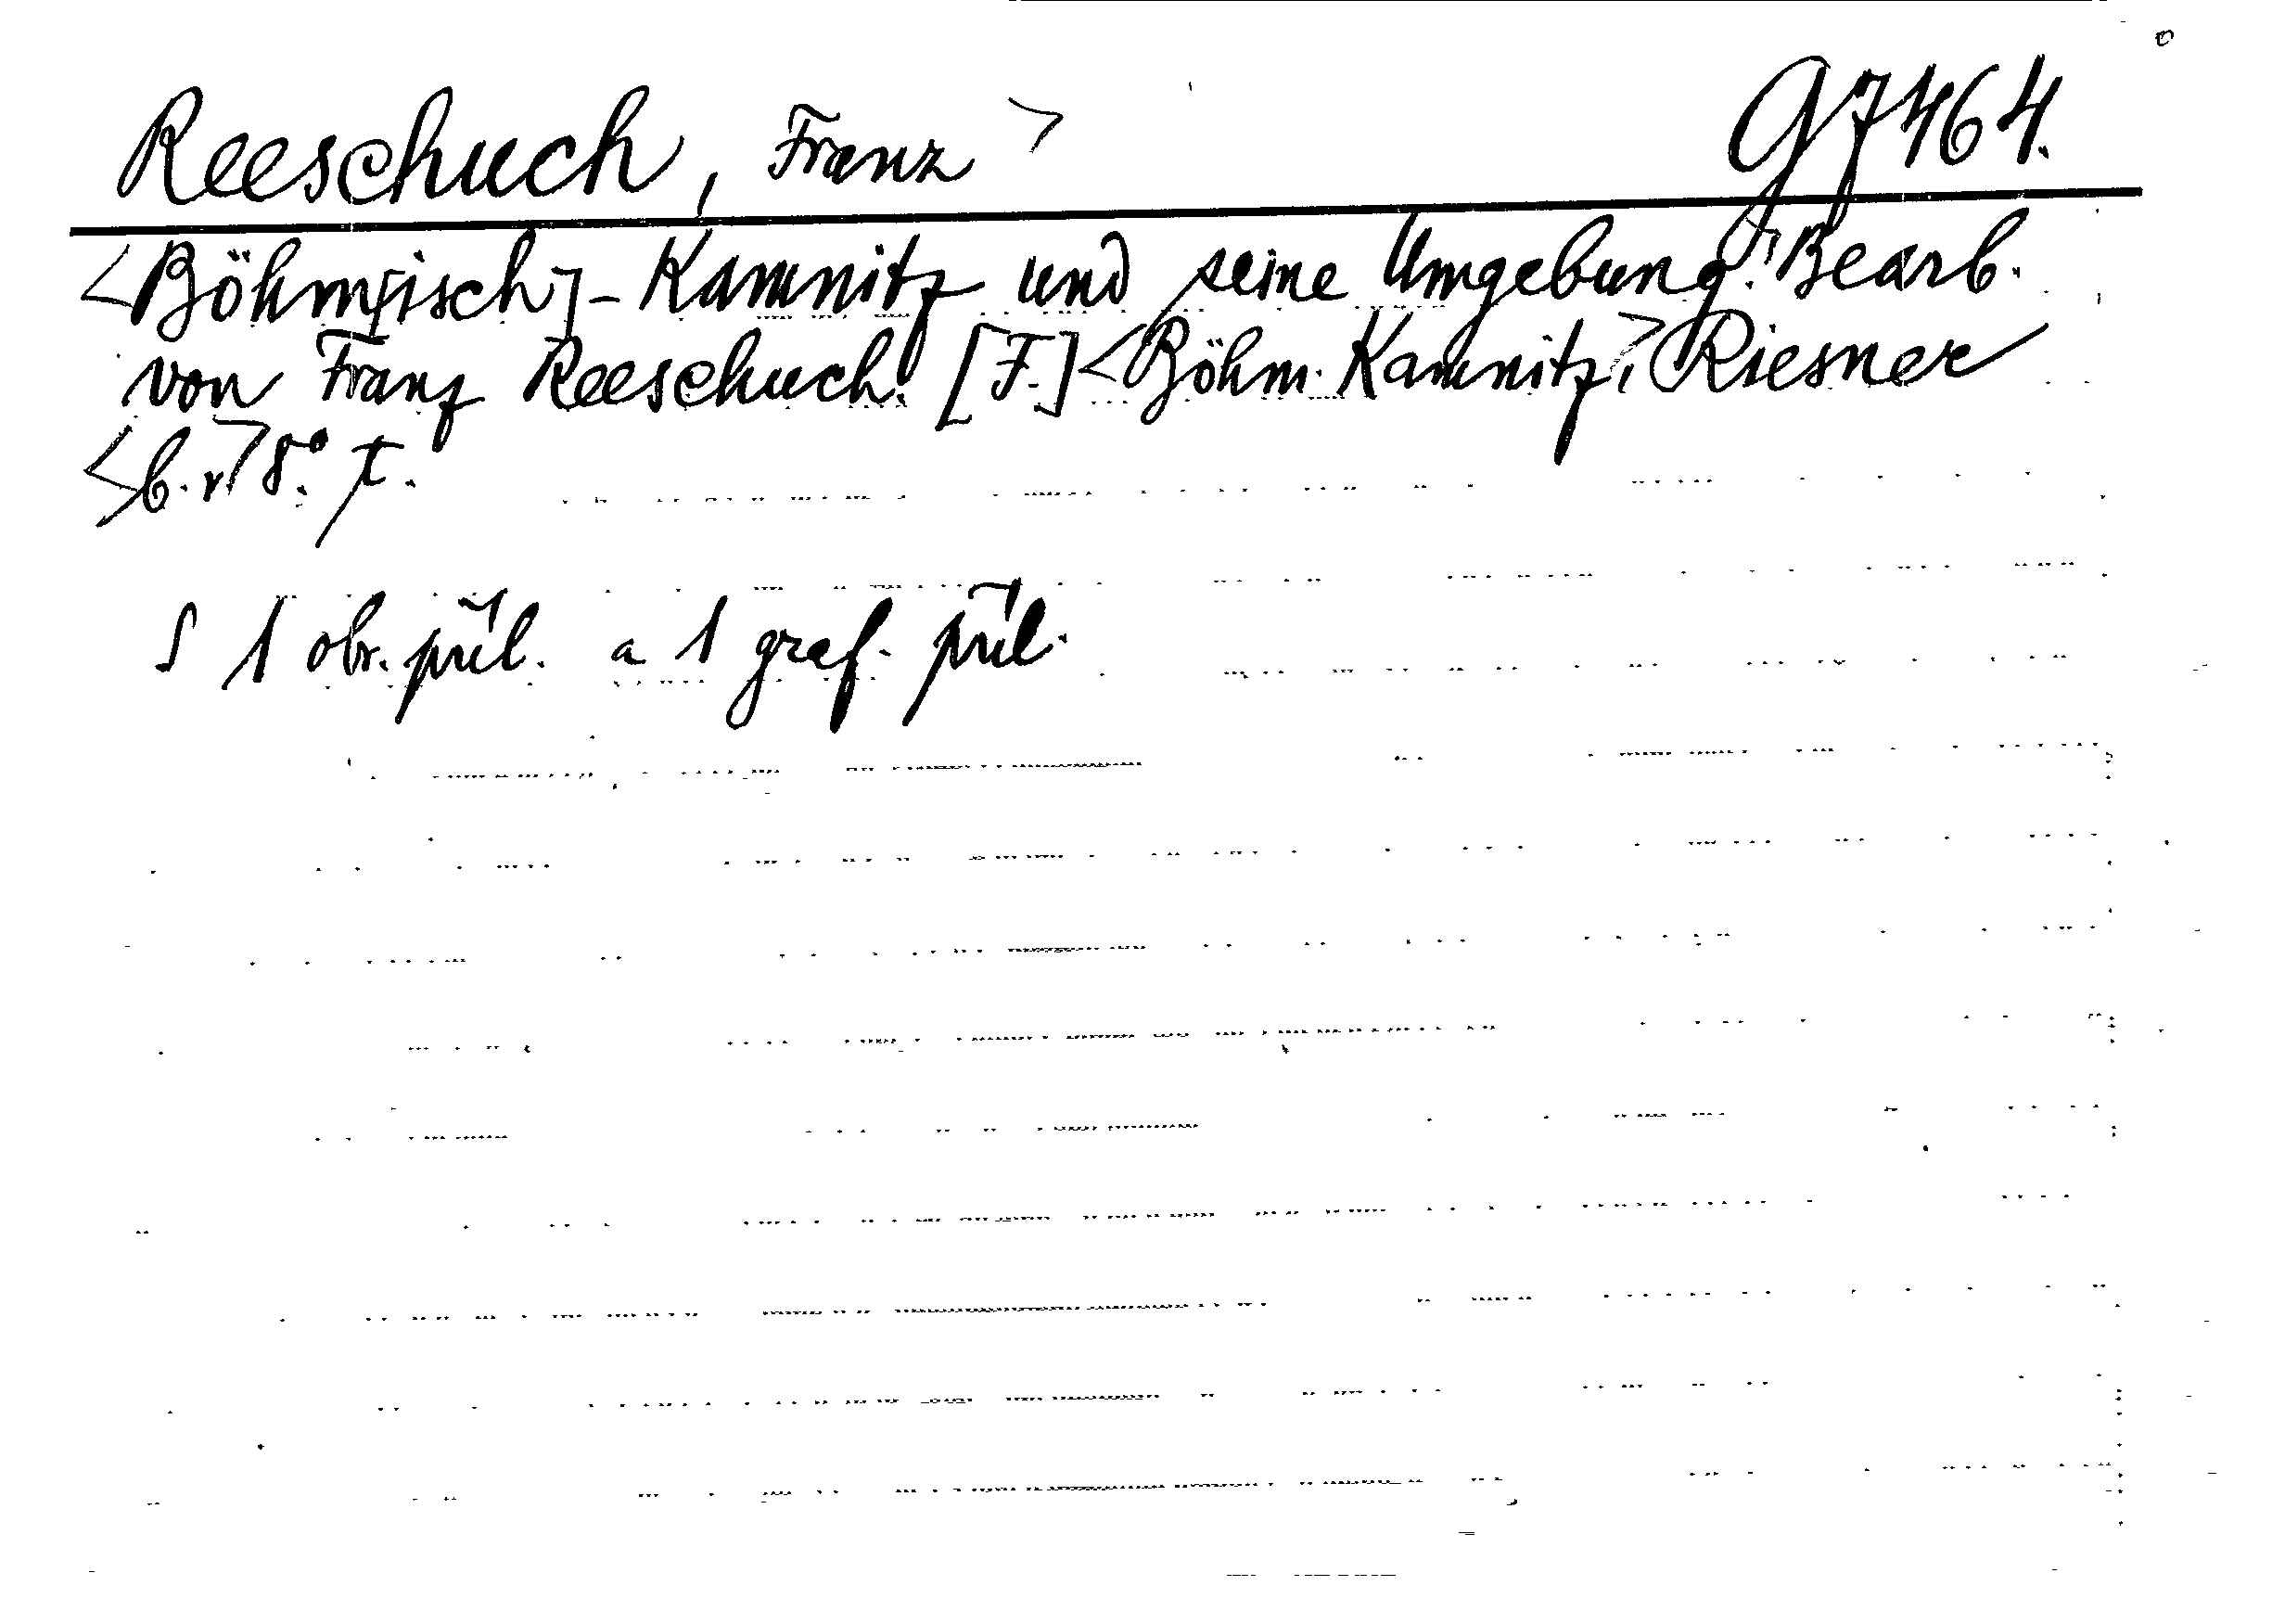 Reeschuch, Franz > g 7464.
<Böhm[isch]-Kamnitz und seine Umgebung.> Bearb.
von Franz Reeschuch. [F.] <Böhm. Kamnitz,> Riesner
<b. r.> 8°. t.
S 1 obr. příl. a 1 graf. příl.